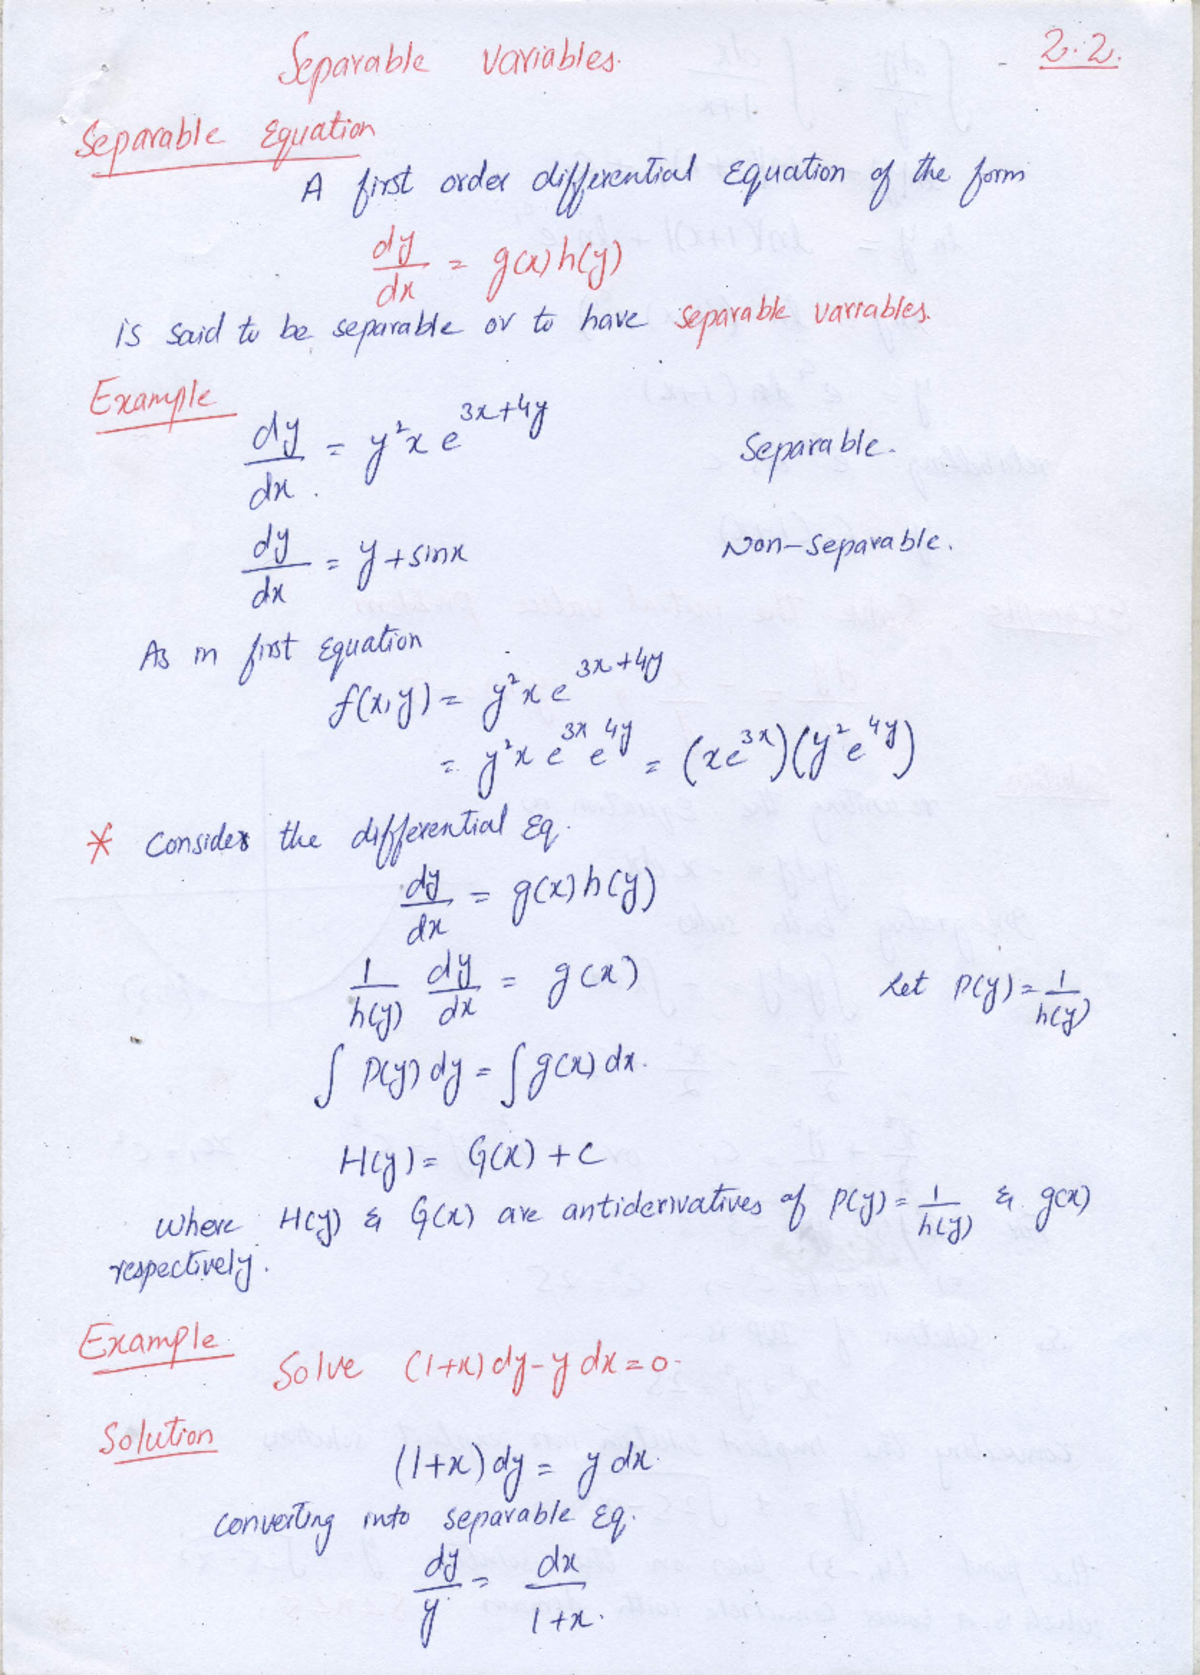 Separable Variables.
2.2.
Separable Equation
A first order differential Equation of the form
dy/dx = g(x)h(y)
is said to be separable or to have separable variables.
Example
dy/dx = y²x e^(3x+4y)    Separable.
dy/dx = y + sinx    Non-separable.
As in first Equation
f(x,y) = y²x e^(3x+4y)
= y²x e^(3x) e^(4y) = (xe^(3x))(y²e^(4y))
* Consider the differential Eq.
dy/dx = g(x)h(y)
1/h(y) dy/dx = g(x)    Let P(y) = 1/h(y)
∫ P(y) dy = ∫ g(x) dx.
H(y) = G(x) + C
where H(y) & G(x) are antiderivatives of P(y) = 1/h(y) & g(x)
respectively.
Example
Solve (1+x) dy - y dx = 0.
Solution
(1+x) dy = y dx.
converting into separable Eq.
dy/y = dx/1+x.